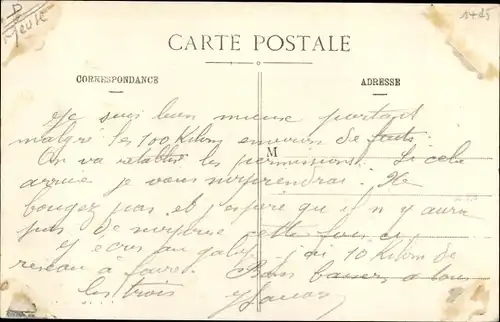 D
Meule
1485
CARTE POSTALE
CORRESPONDANCE
ADRESSE
M
Je suis bien mieux partout
malgré les 100 Kilom environ de faits
On va rétablir les permissions. Si cela
arrive je vous surprendrai. Ne
bougez pas et j'espère que il n y aura
pas de surprise cette fois ci
J ecris au galop j ai 10 Kilom de
réseau à faire. Bons baisers à tous
les trois